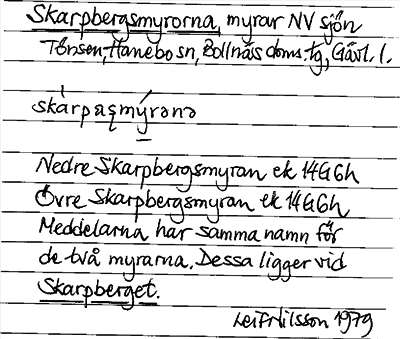 Skarpbergsmyrorna, myrar NV sjön
Tönsen, Hanebo sn, Bollnäs doms.tg, Gävl. l.
skárpaʂmýrənə
Nedre Skarpbergsmyran ek 14G6h
Övre Skarpbergsmyran ek 14G6h
Meddelarna har samma namn för
de två myrarna. Dessa ligger vid
Skarpberget.
Leif Nilsson 1979